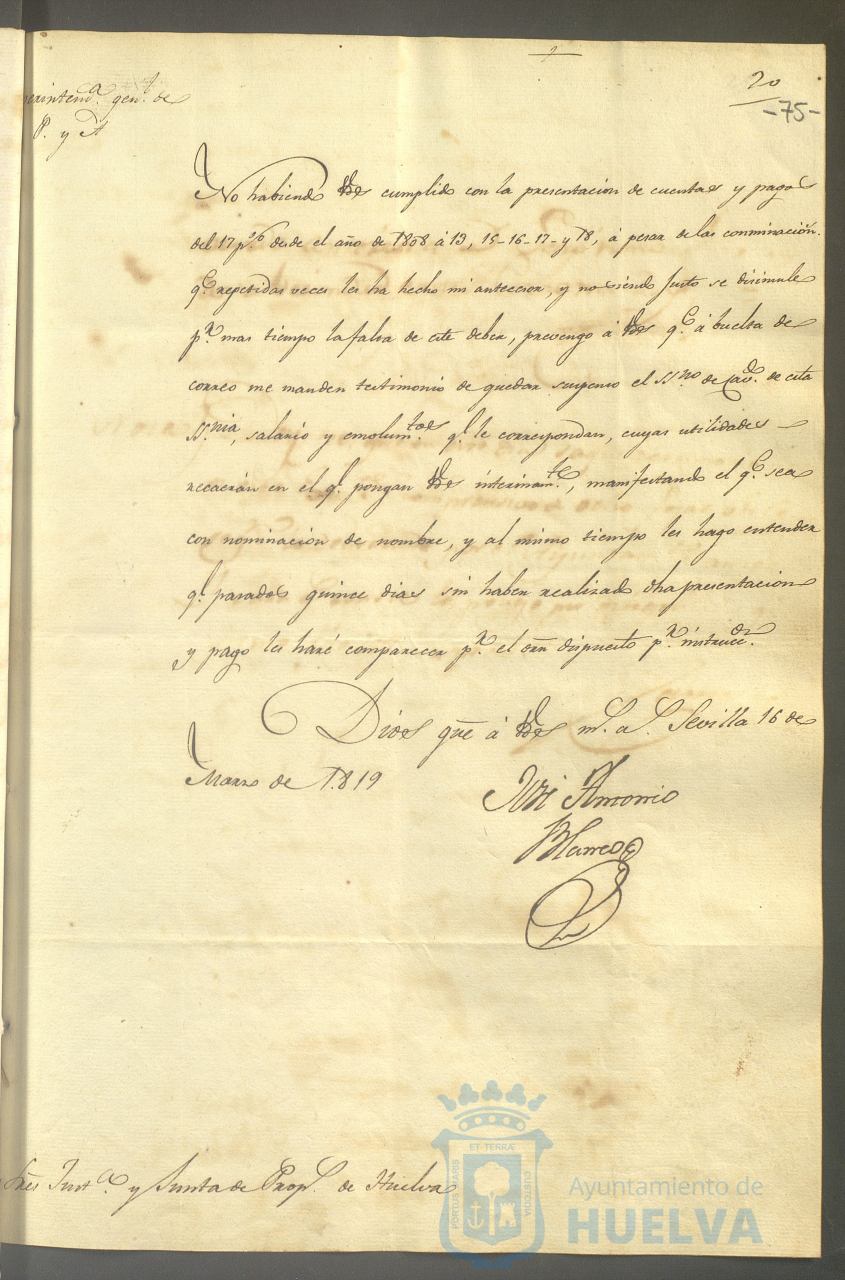 20
-75-
erintend.ª gen.l de
P. y A
No habiendo Vdes cumplido con la presentacion de cuentas y pago
del 17 p.% desde el año de 1808 á 13, 15-16-17- y 18, á pesar de las conminacion.
q.e repetidas veces les ha hecho mi antecesor, y no siendo justo se disimule
p.r mas tiempo la falta de este deber, prevengo á Vdes q.e á buelta de
correo me manden testimonio de quedar suspenso el SSno de Cav.do de esta
SS.nia, salario y emolum.tos q.e le correspondan, cuyas utilidades
recaerán en el q.e pongan Vdes interinam.te, manifestando el q.e sea
con nominación de nombre, y al mismo tiempo les hago entender
q.e pasados quince dias sin haber realizado dha presentacion
y pago les haré comparecer p.r el orn dispuesto p.r instrucc.on
Dios gue á Vdes m.s a.s Sevilla 16 de
Marzo de 1819
Antonio
Blanco
Sres Just.ª y Junta de Prop.s de Huelva
ET TERRÆ
PORTUS MARIS
CUSTODIA
Ayuntamiento de
HUELVA